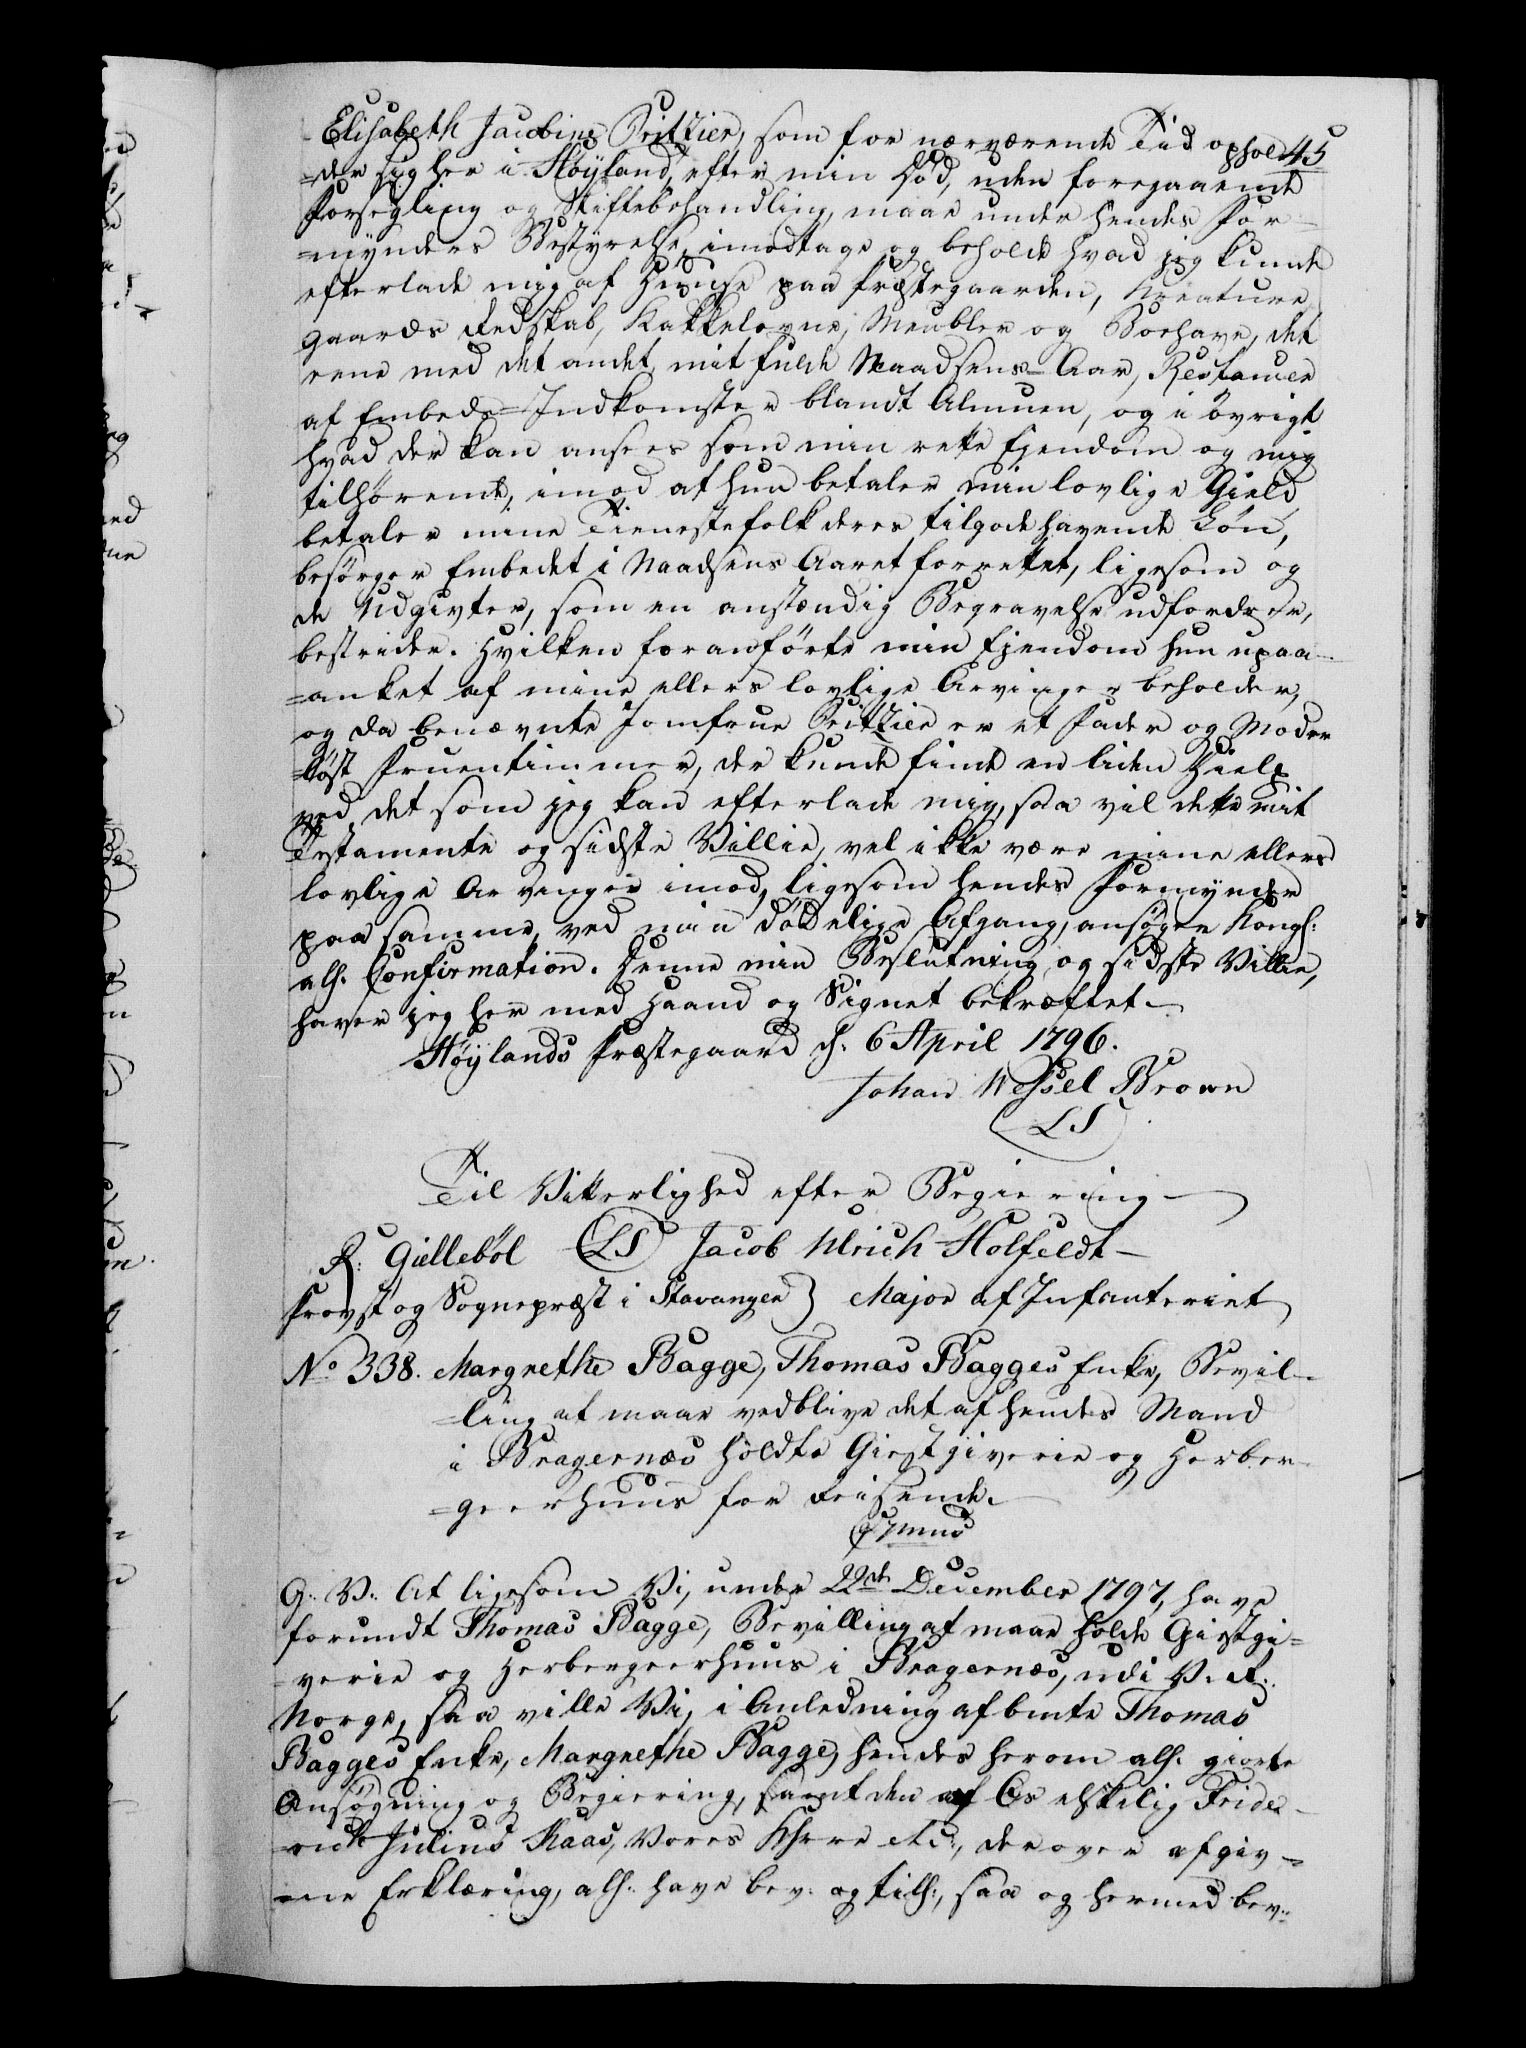 45
Elisabeth Jacobine Pritzier, som for nærværende Tid ophol-
=der sig her i Høyland, efter min Død, uden foregaaende
Forsegling og Skiftebehandling, maae under hendes For-
=mynders Bestyrelse imodtage og beholde hvad jeg kunde
efterlade mig af Huuse paa Præstegaarden, Kreature,
Gaards Redskab, Kakkelovne, Meubler og Boehave, det
eene med det andet, mit fulde Naadsens-Aar, Restancer
af Embeds-Indkomster blandt Almuen, og i øvrigt
hvad der kan ansees som min rette Ejendom og mig
tilhørende, imod at hun betaler min lovlige Gield,
betaler mine Tienestefolk deres tilgodehavende Løn,
besørger Embedet i Naadsens Aaret forrettet, ligesom og
de Udgivter, som en anstændig Begravelse udfordrer,
bestrider. Hvilken foranførte min Ejendom hun upaa-
=anket af mine ellers lovlige Arvinger beholder,
og da benævnte Jomfrue Pritzier er et Fader og Moder
=løst Fruentimmer, der kunde finde en liden Hielp
ved det som jeg kan efterlade mig, saa vil dette mit
Testamente og sidste Villie, vel ikke være mine ellers
lovlige Arvinger imod, ligesom hendes Formynder
paa samme, ved min dødelige Afgang, ansøger Kongl:
all. Confirmation. Denne min Beslutning og sidste Villie,
haver jeg her med Haand og Signet bekræftet.
Høylands Præstegaard d. 6 April 1796.
Johan Wessel Brown
(LS)
Til Vitterlighed efter Begiering
R: Gielleböl (LS) Jacob Ulrich Holfeldt
Provst og Sognepræst i Stavanger) Major af Infanteriet
No 338. Margrethe Bagge, Thomas Bagges Enke, Bevil-
=ling at maae vedblive det af hendes Mand
i Bragernæs holdte Giestgiverie og Herber-
=geerhuus for Reisende.
G: V: At ligesom Vi, under 22de December 1797, have
forundt Thomas Bagge, Bevilling at maae holde Giestgi=
=verie og Herbergeerhuus i Bragernæs, udi V. R.
Norge, saa ville Vi, i Anledning af bmte Thomas
Bagges Enke, Margrethe Bagge, hendes herom all. giorte
Ansøgning og Begiering, samt den af Os elskelig Fride-
=rich Julius Kaas, Vores Khrre etc:, derover afgiv-
=ne Erklæring, all. have bev: og till:, saa og hermed bev: